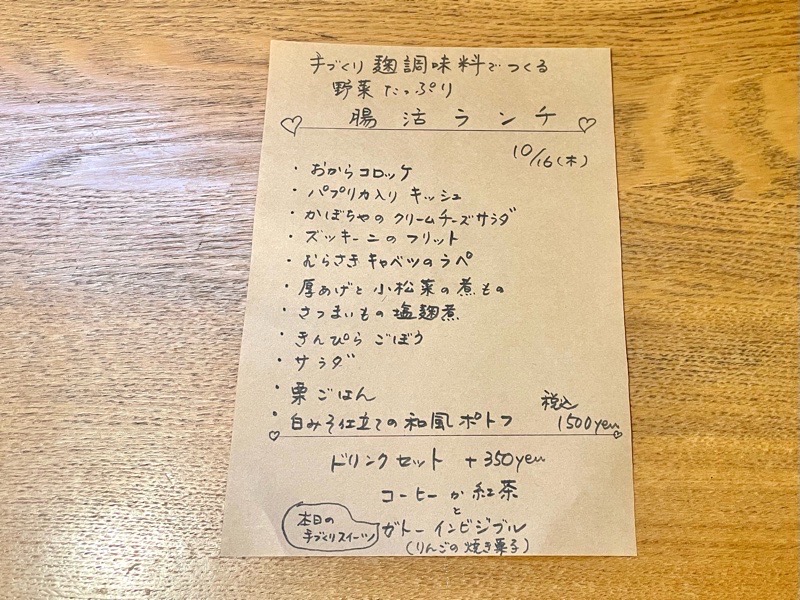 手づくり麹調味料でつくる
野菜たっぷり
腸活ランチ
10/16(木)
・おからコロッケ
・パプリカ入りキッシュ
・かぼちゃのクリームチーズサラダ
・ズッキーニのフリット
・むらさきキャベツのラペ
・厚あげと小松菜の煮もの
・さつまいもの塩麹煮
・きんぴらごぼう
・サラダ
・栗ごはん
・白みそ仕立ての和風ポトフ
税込
1500yen
ドリンクセット +350yen
コーヒーか紅茶
と
本日の
手づくりスイーツ
ガトーインビジブル
(りんごの焼き菓子)